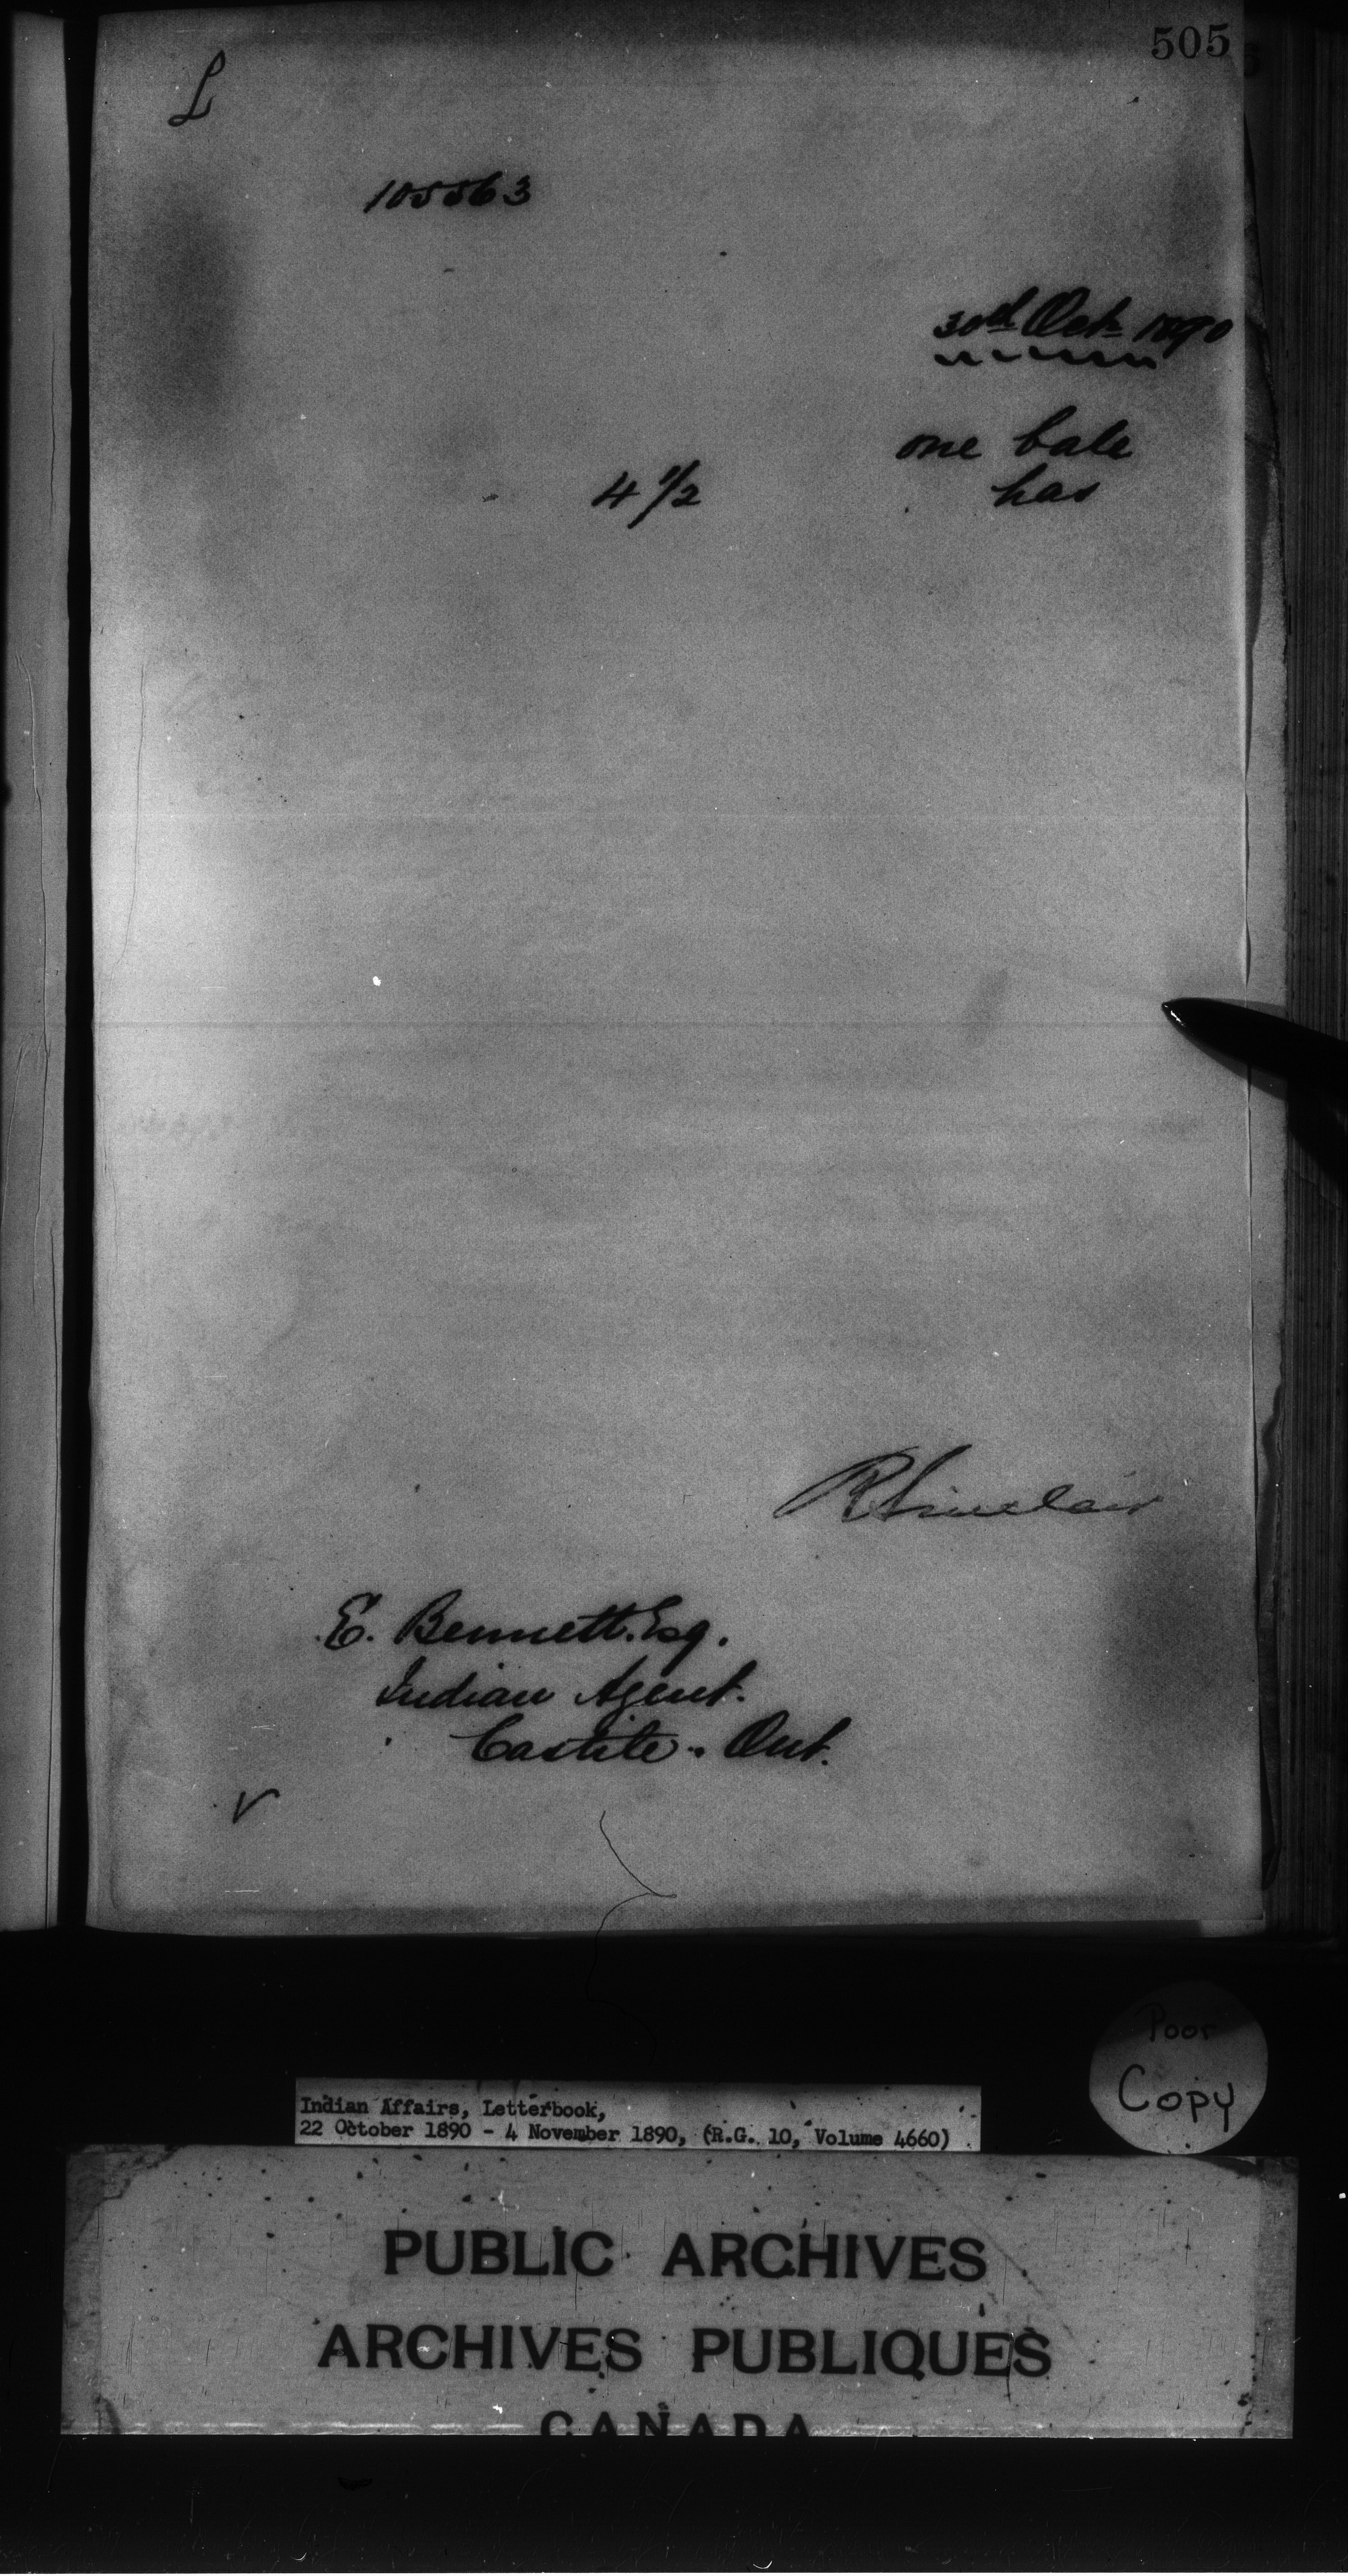 505
L
105563
30th Oct. 1890
one bale
4 1/2 has
R Sinclair
E. Bennett. Esq.
Indian Agent.
Castile. Ont.
Poor
Copy
Indian Affairs, Letterbook,
22 October 1890 - 4 November 1890, (R.G. 10, Volume 4660)
PUBLIC ARCHIVES
ARCHIVES PUBLIQUES
CANADA